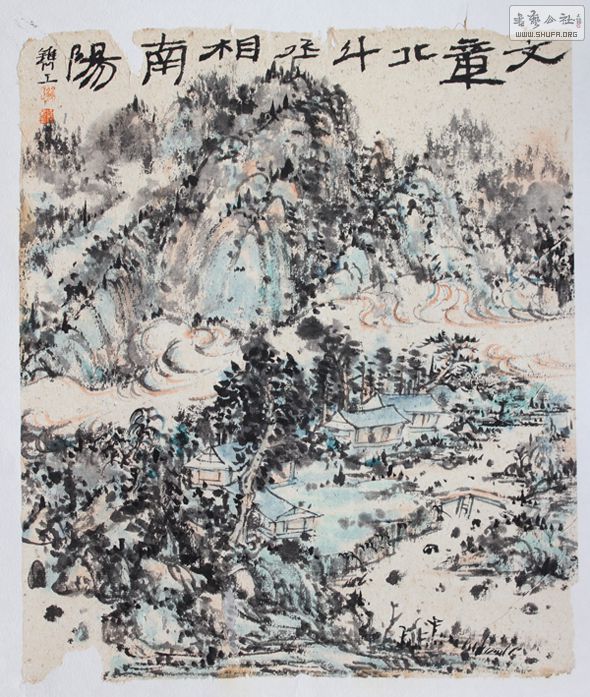 文章北斗丞相南陽
書藝公社
WWW.SHUFA.ORG